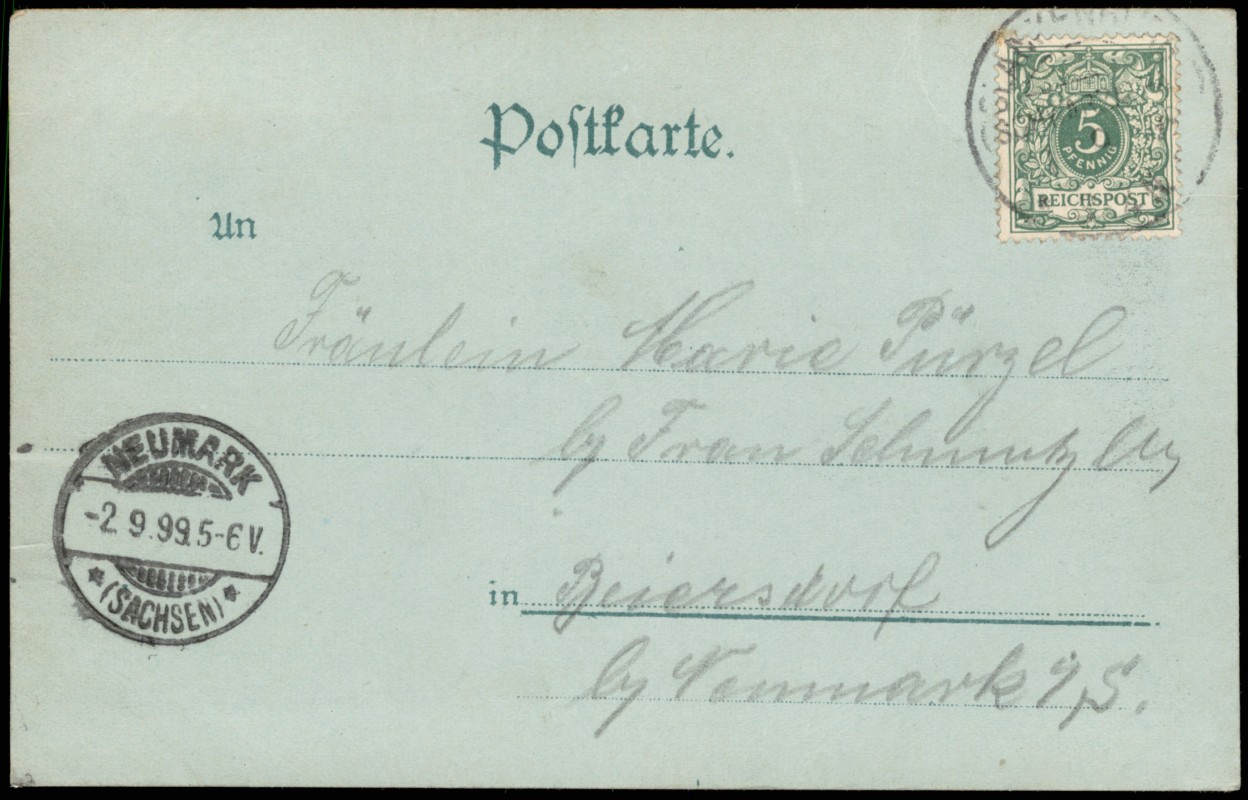 Postkarte.
5
PFENNIG
REICHSPOST
An
Fräulein Marie Pürzel
by Frau Schmutzler
NEUMARK
-2.9.99.5-6V.
(SACHSEN)
in Beiersdorf
by Neumark i/S.